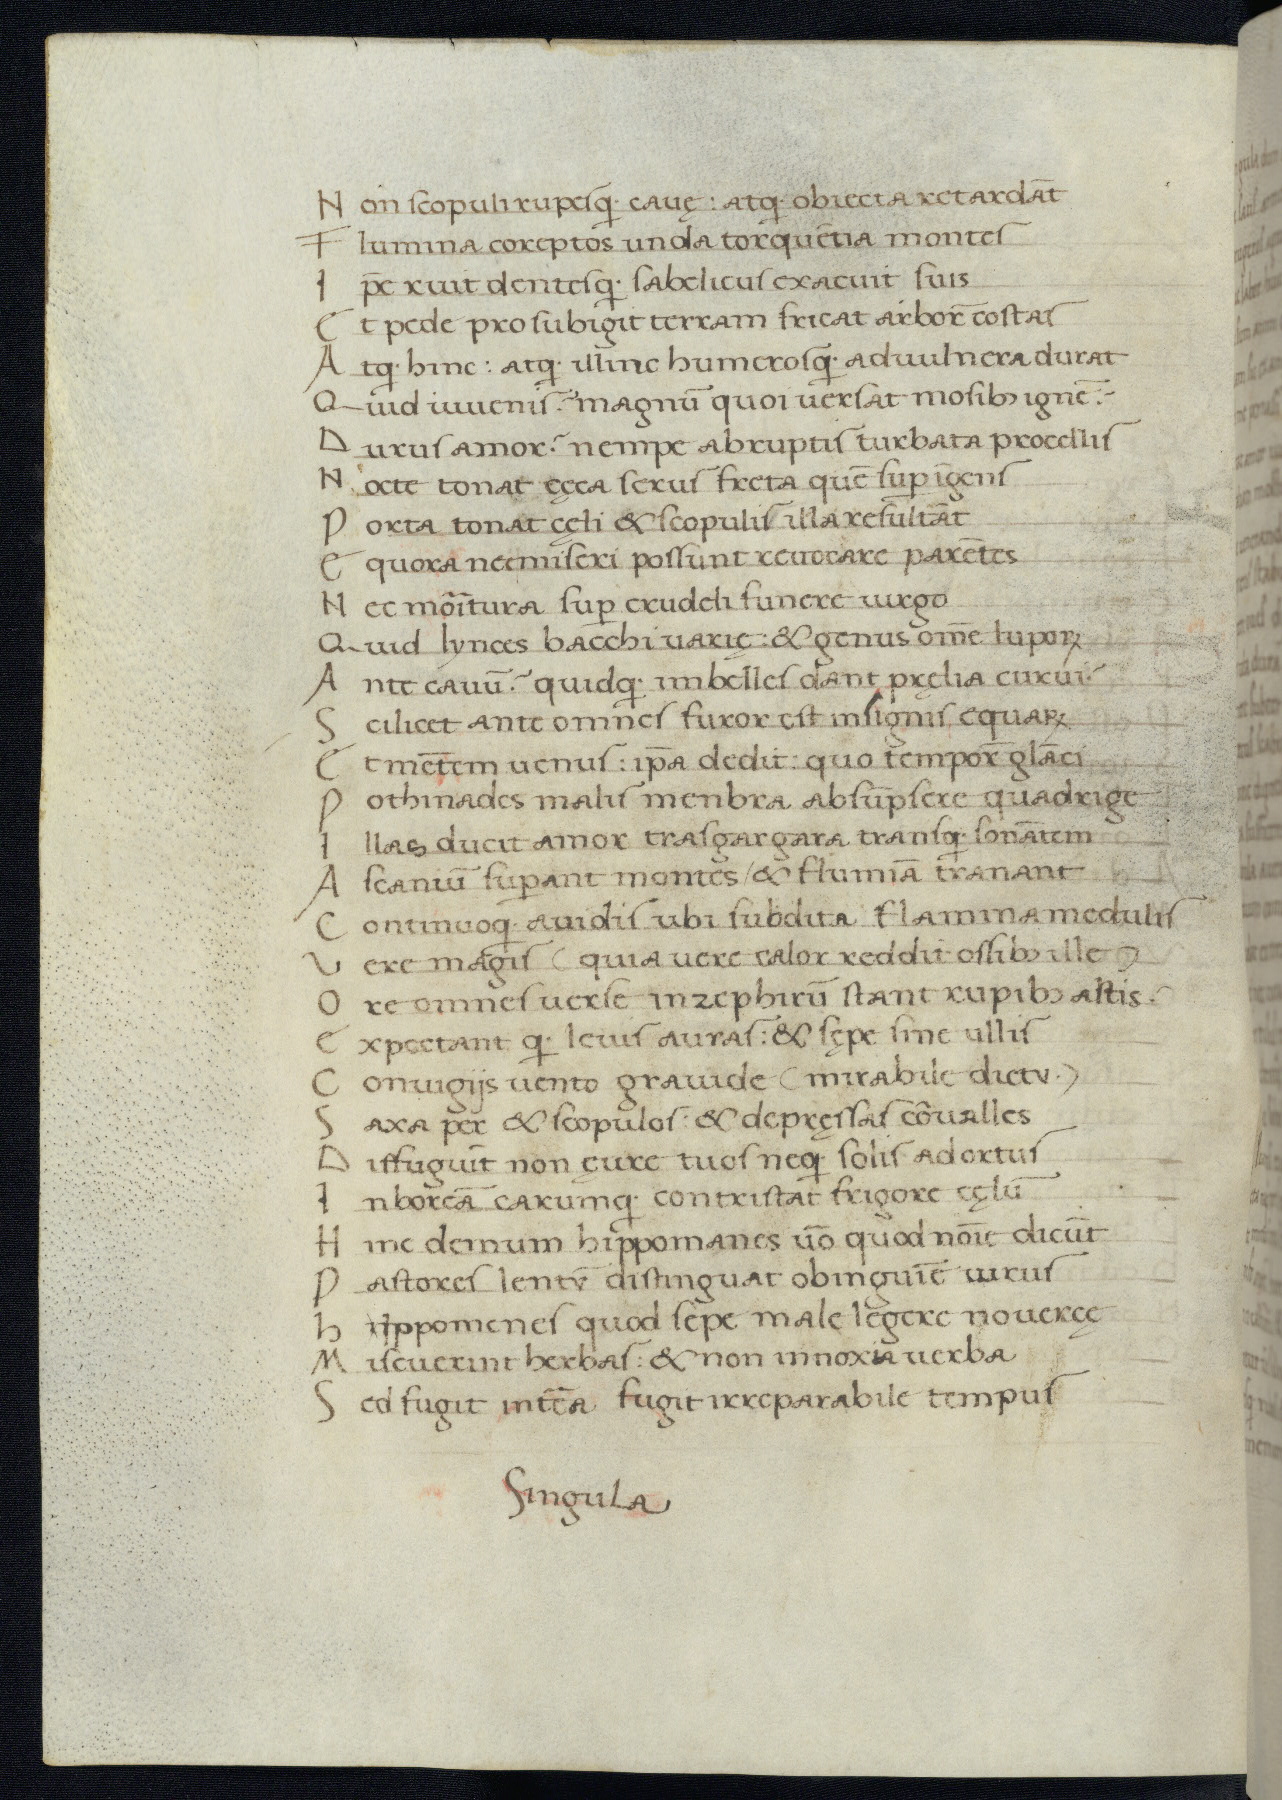 N on scopuli rupesq; cauę : atq; obiecta retardāt
F lumina coreptos unda torquētia montes
I pē ruit dentesq; sabelicus exacuit suis
E t pede prosubigit terram fricat arbor̄ costas
A tq; hinc : atq; illinc humerosq; ad uulnera durat
Q uid iuuenis? magnū quoi uersat i nosibꝫ ignē?
D urus amor? nempe abruptis turbata procellis
N octe tonat cęca serus freta quē sup īgens
P orta tonat cęli & scopulis illaresultāt
E quora nec miseri possunt reuocare parētes
N ec mōitura sup crudeli funere uirgo
Q uid lynces bacchi uarię : & genus om̄e lupoꝝ
A nte cauū? quidq; imbelles dant pręlia curui?
S cilicet ante omnes furor est insignis equaꝝ
E t mētem uenus : ip̄a dedit : quo tempor̄ glāci
P othinades malis menbra absūpsere quadrige
I llas ducit amor tras gargara transq; sonātem
A scaniū supant montes / & flumīa tranant
C ontinuoq; auidis ubi subdita flamma medulis
V ere magis ( quia uere calor reddit ossibꝫ ille )
O re omnes uerse in zephirū stant rupibꝫ altis.
E xpectant q; leuis auras : & sępe sine ullis
C onuigijs uento grauide ( mirabile dictu . )
S axa per & scopulos : & depręssas cōualles
D iffuguit̄ non ęure tuos neq; solis ad ortus
I n boreā carumq; contristat frigore cęlū
H inc demum hippomanes ūo quod nōīe dicūt
P astores lentū distinguat ob inguīe uirus
h ippomenes quod sepe male legere nouercę
M iscuerint herbas : & non innoxia uerba
S ed fugit intēa fugit irreparabile tempus
Singula